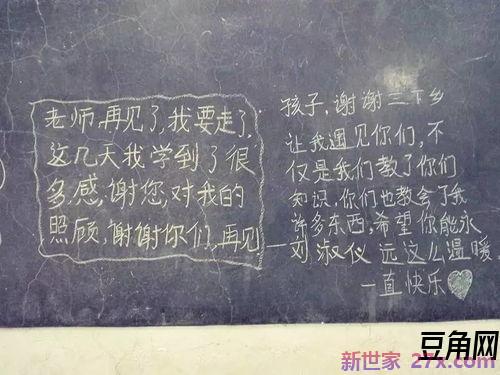 老师,再见了,我要走了,
这几天我学到了很
多,感,谢您,对我的
照顾,谢谢你们,再见
孩子,谢谢三下乡
让我遇见你们,不
仅是我们教了你们
知识,你们也教会了我
许多东西,希望你能永
—刘淑仪 远这么温暖,
一直快乐
豆角网
新世家 27x.com